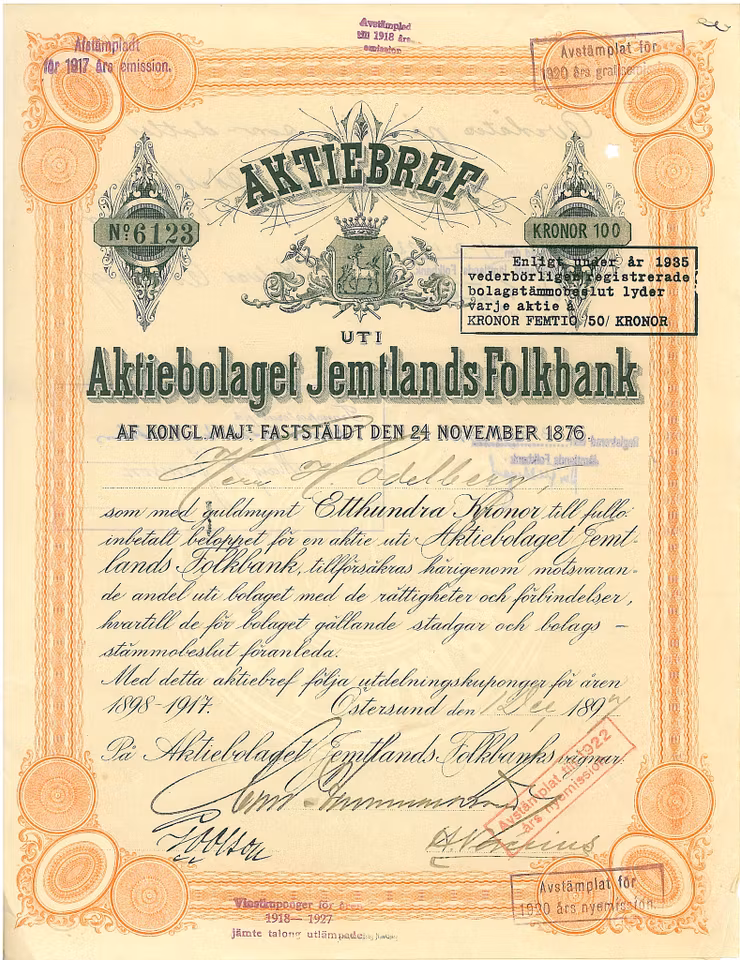 Afstämpladt
för 1917 års emission.
Avstämplad
till 1918 års
emission
Avstämplat för
1920 års gratisemission
AKTIEBREF
No 6123
KRONOR 100
Enligt under år 1935
vederbörligen registrerade
bolagstämmobeslut lyder
varje aktie å
KRONOR FEMTIO /50/ KRONOR
UTI
Aktiebolaget Jemtlands Folkbank
AF KONGL. MAJT. FASTSTÄLDT DEN 24 NOVEMBER 1876.
Herr H. Odelberg,
som med guldmynt Etthundra Kronor till fullo
inbetalt beloppet för en aktie uti Aktiebolaget Jemt-
lands Folkbank, tillförsäkras härigenom motsvaran-
de andel uti bolaget med de rättigheter och förbindelser,
hvartill de för bolaget gällande stadgar och bolags-
stämmobeslut föranleda.
Med detta aktiebref följa utdelningskuponger för åren
1898-1917. Östersund den 1 Dec. 1897
På Aktiebolaget Jemtlands Folkbanks vägnar:
Avstämplat till 1922
års nyemission.
Vinstkuponger för åren
1918—1927
jämte talong utlämnade.
Avstämplat för
1920 års nyemission.